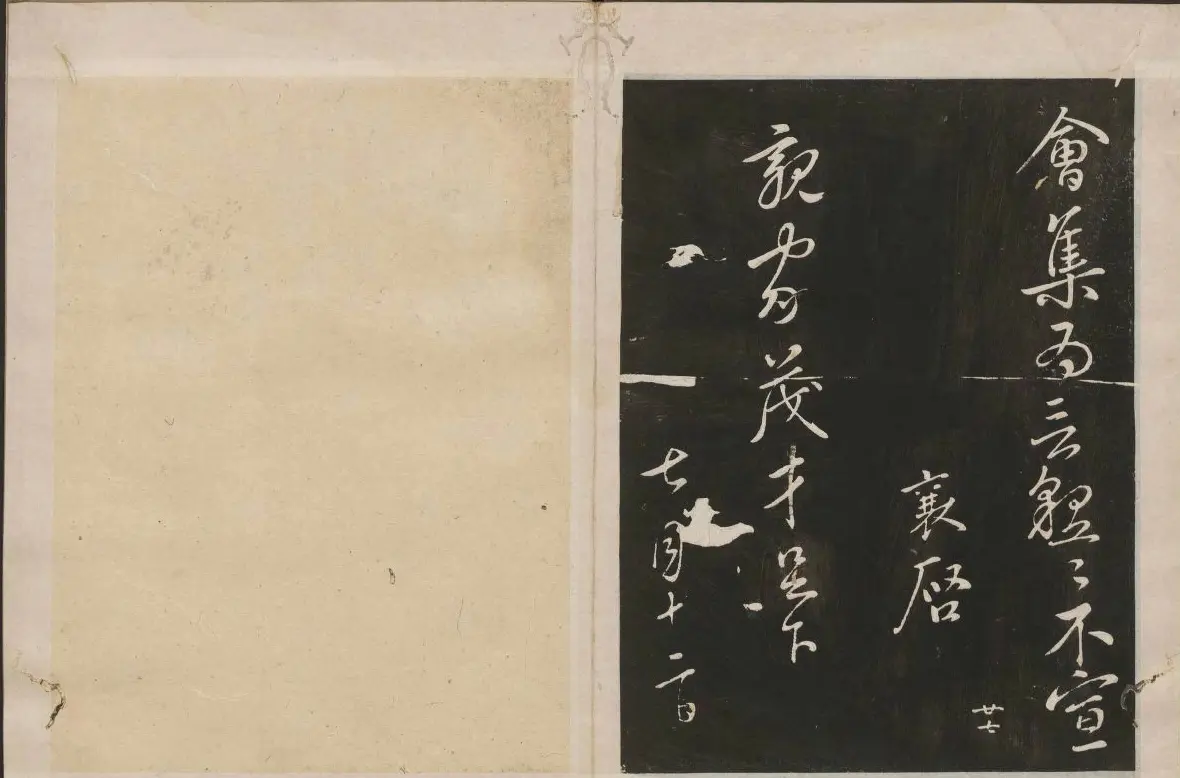 會集為云〻不宣
廿七
襄啓
親家茂才足下
七月十二日